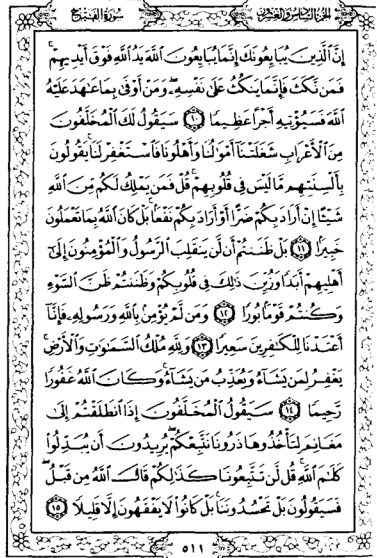 الجزء السادس والعشرون
سورة الفتح
إِنَّ الَّذِينَ يُبَايِعُونَكَ إِنَّمَا يُبَايِعُونَ اللَّهَ يَدُ اللَّهِ فَوْقَ أَيْدِيهِمْ
فَمَن نَّكَثَ فَإِنَّمَا يَنكُثُ عَلَىٰ نَفْسِهِ وَمَنْ أَوْفَىٰ بِمَا عَاهَدَ عَلَيْهُ
اللَّهَ فَسَيُؤْتِيهِ أَجْرًا عَظِيمًا ١٠ سَيَقُولُ لَكَ الْمُخَلَّفُونَ
مِنَ الْأَعْرَابِ شَغَلَتْنَا أَمْوَالُنَا وَأَهْلُونَا فَاسْتَغْفِرْ لَنَا يَقُولُونَ
بِأَلْسِنَتِهِم مَّا لَيْسَ فِي قُلُوبِهِمْ قُلْ فَمَن يَمْلِكُ لَكُم مِّنَ اللَّهِ
شَيْئًا إِنْ أَرَادَ بِكُمْ ضَرًّا أَوْ أَرَادَ بِكُمْ نَفْعًا بَلْ كَانَ اللَّهُ بِمَا تَعْمَلُونَ
خَبِيرًا ١١ بَلْ ظَنَنتُمْ أَن لَّن يَنقَلِبَ الرَّسُولُ وَالْمُؤْمِنُونَ إِلَىٰ
أَهْلِيهِمْ أَبَدًا وَزُيِّنَ ذَٰلِكَ فِي قُلُوبِكُمْ وَظَنَنتُمْ ظَنَّ السَّوْءِ
وَكُنتُمْ قَوْمًا بُورًا ١٢ وَمَن لَّمْ يُؤْمِن بِاللَّهِ وَرَسُولِهِ فَإِنَّا
أَعْتَدْنَا لِلْكَافِرِينَ سَعِيرًا ١٣ وَلِلَّهِ مُلْكُ السَّمَاوَاتِ وَالْأَرْضِ
يَغْفِرُ لِمَن يَشَاءُ وَيُعَذِّبُ مَن يَشَاءُ وَكَانَ اللَّهُ غَفُورًا
رَّحِيمًا ١٤ سَيَقُولُ الْمُخَلَّفُونَ إِذَا انطَلَقْتُمْ إِلَىٰ
مَغَانِمَ لِتَأْخُذُوهَا ذَرُونَا نَتَّبِعْكُمْ يُرِيدُونَ أَن يُبَدِّلُوا
كَلَامَ اللَّهِ قُل لَّن تَتَّبِعُونَا كَذَٰلِكُمْ قَالَ اللَّهُ مِن قَبْلُ
فَسَيَقُولُونَ بَلْ تَحْسُدُونَنَا بَلْ كَانُوا لَا يَفْقَهُونَ إِلَّا قَلِيلًا ١٥
٥١١